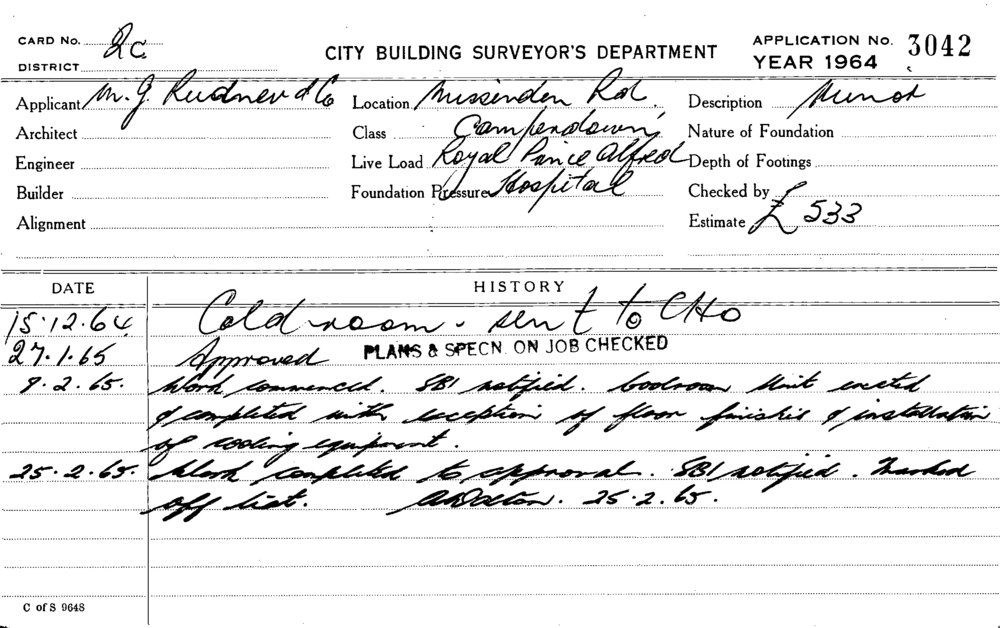 CARD No. 2c
DISTRICT
CITY BUILDING SURVEYOR'S DEPARTMENT
APPLICATION No. 3042
YEAR 1964
Applicant M. G. Rudnev & Co
Location Missenden Rd.
Description Minor
Architect
Class Camperdown,
Nature of Foundation
Engineer
Live Load Royal Prince Alfred
Depth of Footings
Builder
Foundation Pressure Hospital
Checked by
Alignment
Estimate £533
DATE HISTORY
15.12.64 Cold-room. sent to CHO
27.1.65 Approved PLANS & SPECN. ON JOB CHECKED
9.2.65. Work commenced. SBI notified. Coolroom Unit erected
& completed with exception of floor finishes & installation
of cooling equipment.
25.2.65. Work completed to approval. SBI notified. Marked
off list. 25.2.65.
C of S 9648